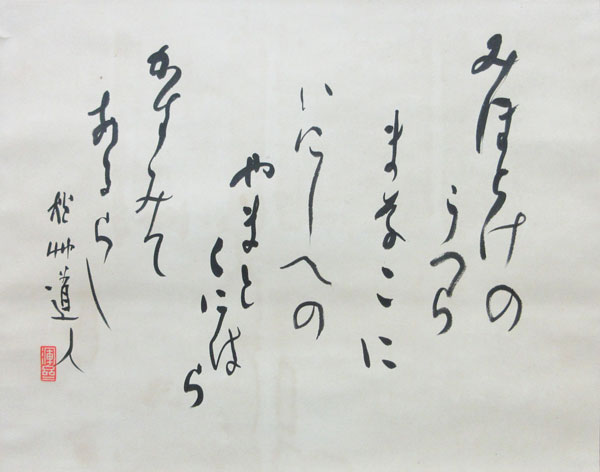 みほとけの
うつら
まなこに
いにしへの
やまと
くにはら
かすみて
あるらし
秋艸道人